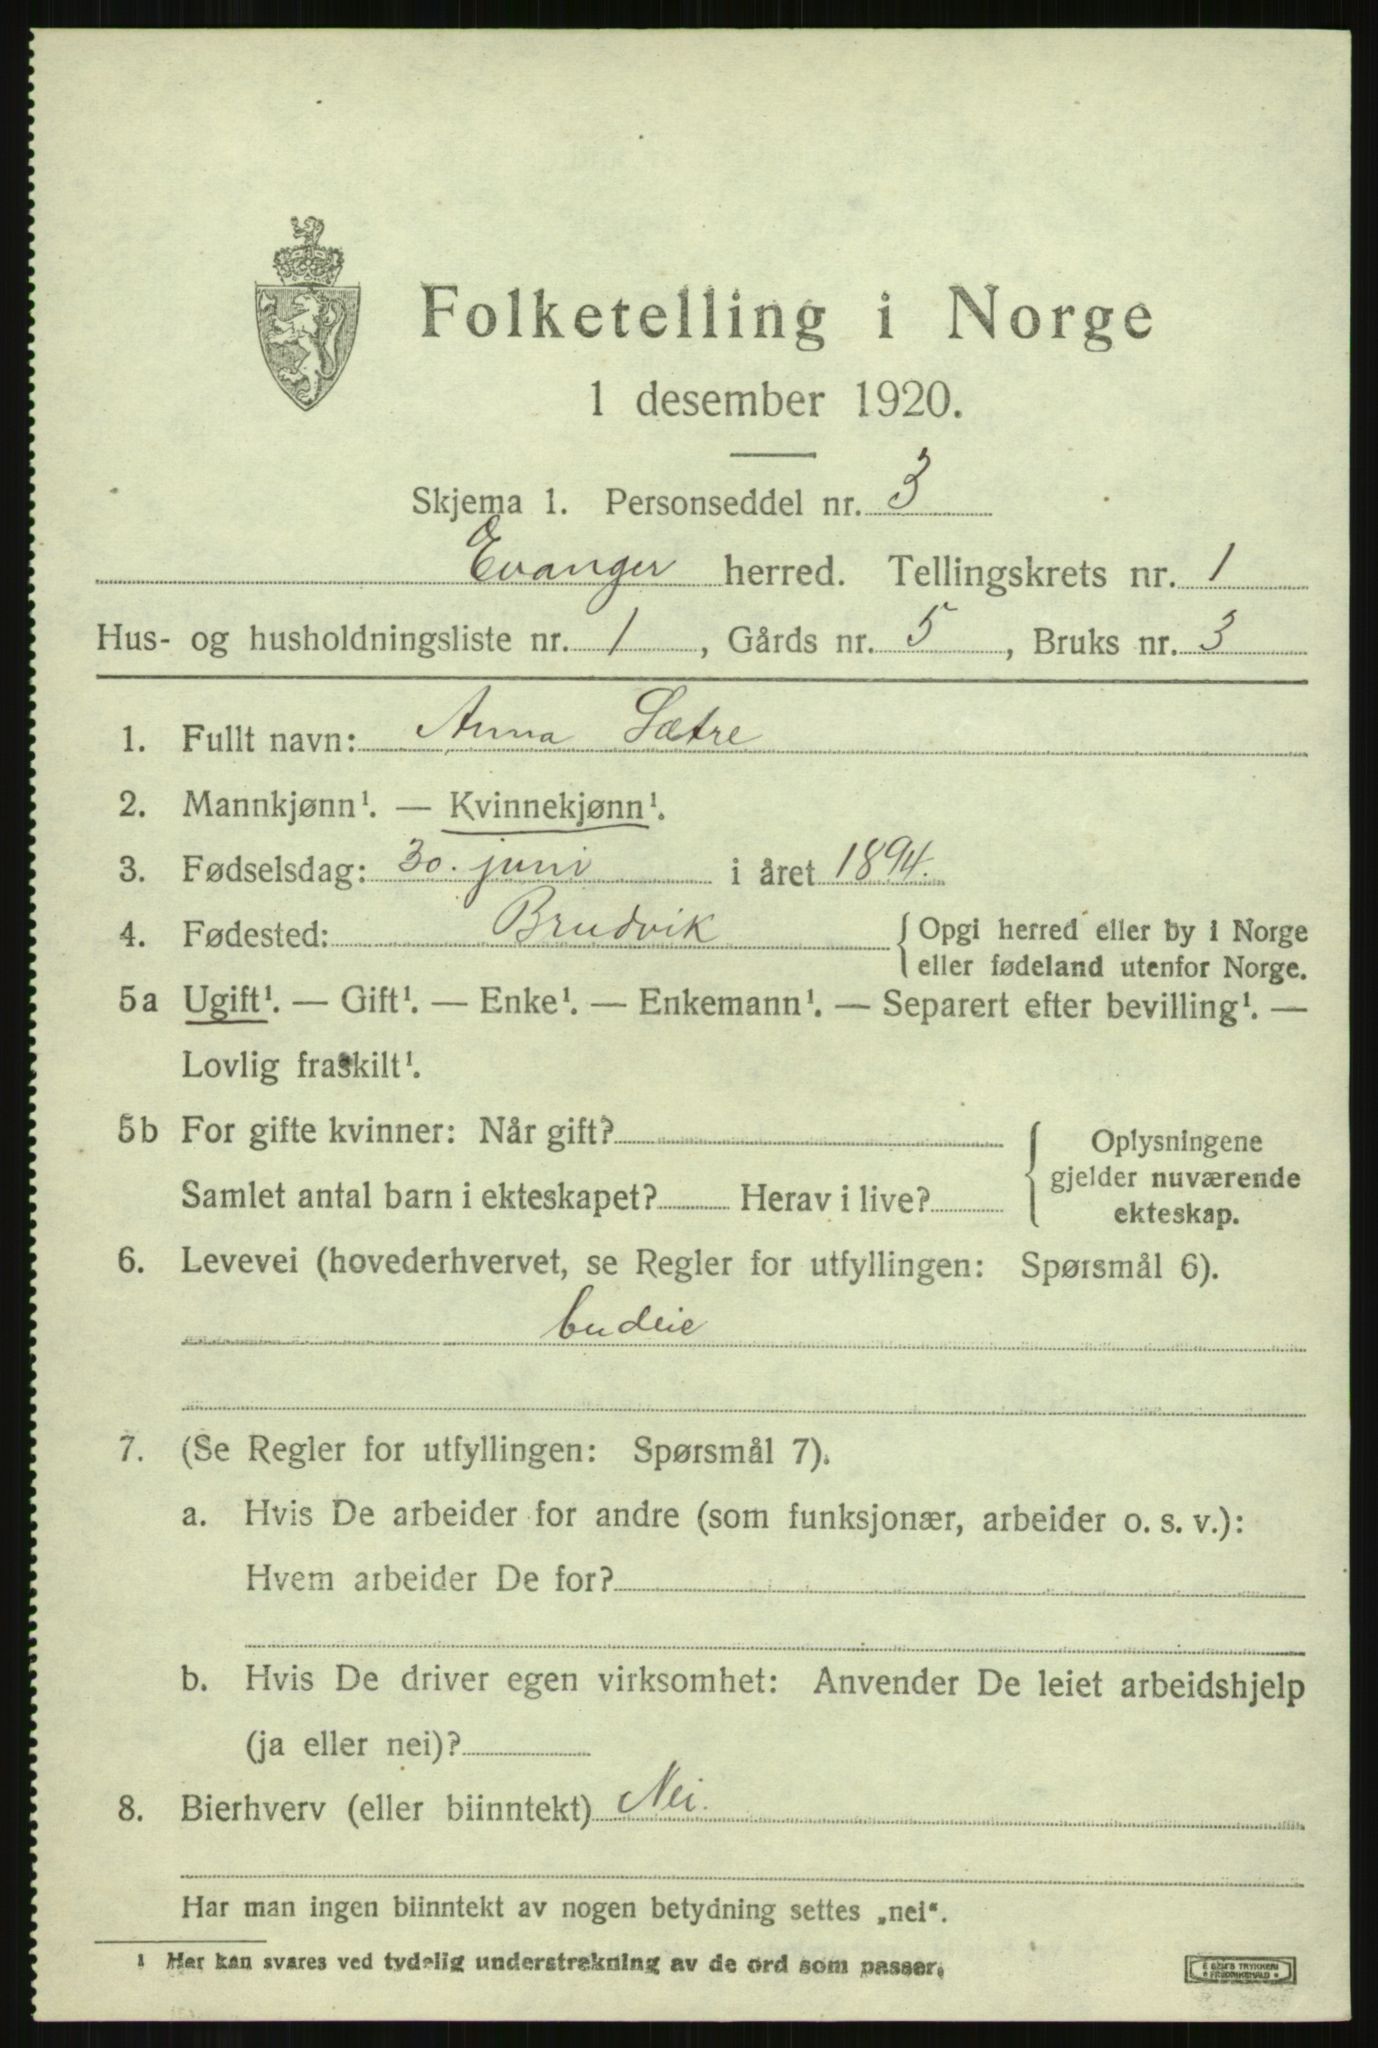 Folketelling i Norge
1 desember 1920.
Skjema 1. Personseddel nr. 3
Evanger herred. Tellingskrets nr. 1
Hus- og husholdningsliste nr. 1, Gårds nr. 5, Bruks nr. 3
1. Fullt navn: Anna Sætre
2. Mannkjønn¹. — Kvinnekjønn¹.
3. Fødselsdag: 30. juni i året 1894.
4. Fødested: Brudvik { Opgi herred eller by i Norge
eller fødeland utenfor Norge.
5a Ugift¹. — Gift¹. — Enke¹. — Enkemann¹. — Separert efter bevilling¹. —
Lovlig fraskilt¹.
5b For gifte kvinner: Når gift?
Samlet antal barn i ekteskapet? Herav i live?
{ Oplysningene
gjelder nuværende
ekteskap.
6. Levevei (hovederhvervet, se Regler for utfyllingen: Spørsmål 6).
budeie
7. (Se Regler for utfyllingen: Spørsmål 7).
a. Hvis De arbeider for andre (som funksjonær, arbeider o. s. v.):
Hvem arbeider De for?
b. Hvis De driver egen virksomhet: Anvender De leiet arbeidshjelp
(ja eller nei)?
8. Bierhverv (eller biinntekt) Nei.
Har man ingen biinntekt av nogen betydning settes „nei“.
¹ Her kan svares ved tydelig understrekning av de ord som passer.
E SEM'S TRYKKERI
FREDRIKSHALD